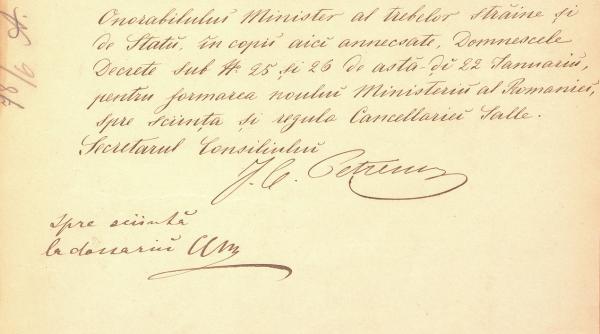 Onorabilului Minister al trebelor străine și
de Statŭ, în copiĭ aicĭ annecsate, Domnescele
Decrete sub № 25 și 26 de astă-dĭ 22 Ianuariŭ,
pentru formarea nouluĭ Ministeriŭ al Romanieĭ,
spre sciința și regula Cancellarieĭ Salle.
Secretarul Consiliuluĭ
spre sciință
la dossariŭ
78/6 A.